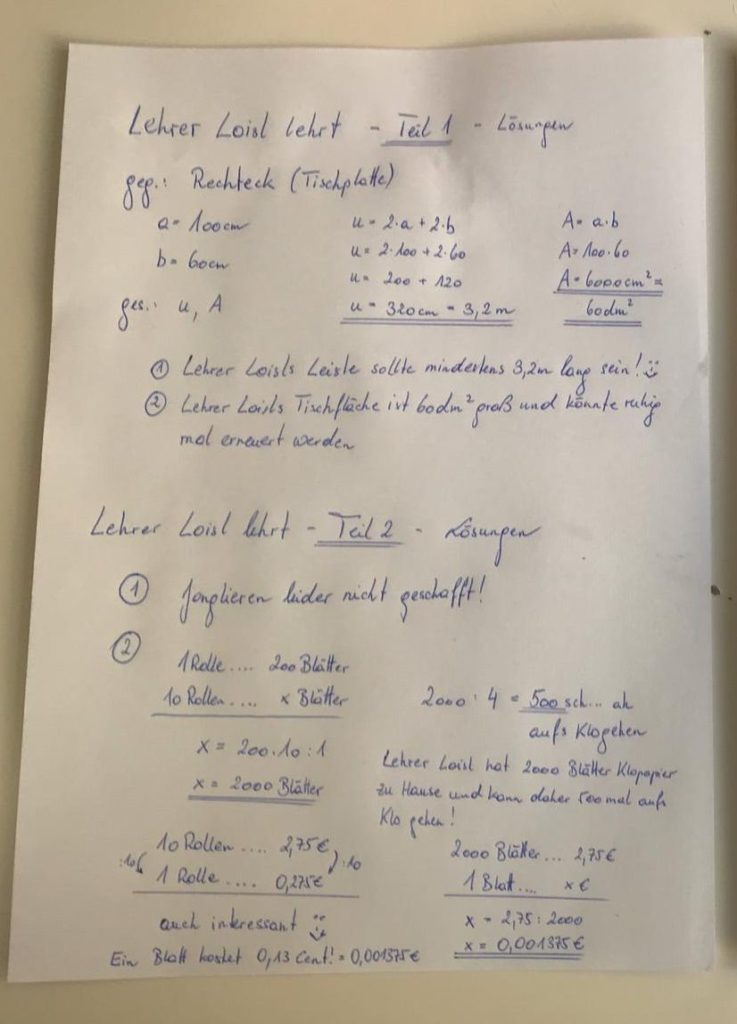 Lehrer Loisl lehrt - Teil 1 - Lösungen
geg.: Rechteck (Tischplatte)
a = 100cm
b = 60cm
ges.: u, A
u = 2·a + 2·b
u = 2·100 + 2·60
u = 200 + 120
u = 320cm = 3,2m
A = a·b
A = 100·60
A = 6000cm² =
60dm²
① Lehrer Loisls Leiste sollte mindestens 3,2m lang sein!
② Lehrer Loisls Tischfläche ist 60dm² groß und könnte ruhig
mal erneuert werden
Lehrer Loisl lehrt - Teil 2 - Lösungen
① Jonglieren leider nicht geschafft!
②
1 Rolle.... 200 Blätter
10 Rollen.... x Blätter
x = 200·10:1
x = 2000 Blätter
2000 : 4 = 500 sch... ah
aufs Klo gehen
Lehrer Loisl hat 2000 Blätter Klopapier
zu Hause und kann daher 500 mal aufs
Klo gehen!
10 Rollen.... 2,75€
:10 :10
1 Rolle.... 0,275€
auch interessant
Ein Blatt kostet 0,13 Cent! = 0,001375€
2000 Blätter... 2,75€
1 Blatt.... x€
x = 2,75 : 2000
x = 0,001375€